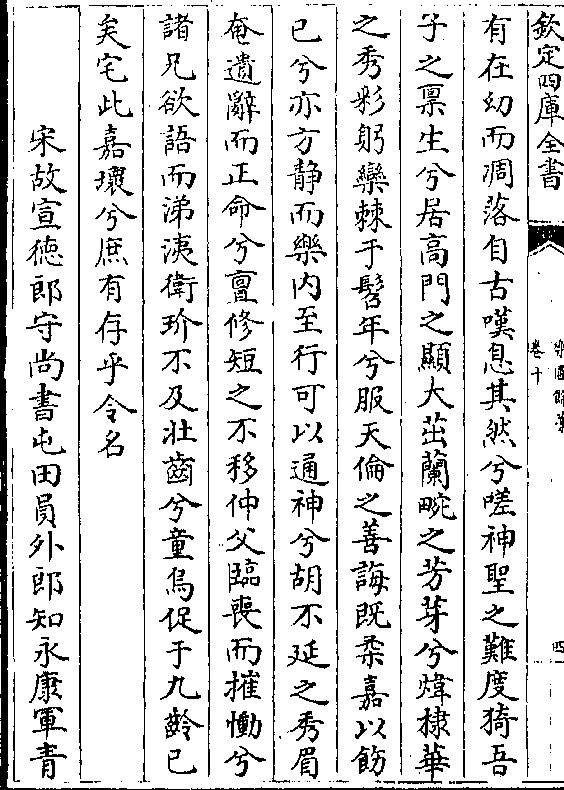 欽定四庫全書
樂圃餘藁
卷十
四
有在幼而凋落自古嘆息其然兮嗟神聖之難度猗吾
子之禀生兮居高門之顯大茁蘭畹之芳芽兮煒棣華
之秀彩躬欒棘于髫年兮服天倫之善誨既柔嘉以飭
已兮亦方静而樂内至行可以通神兮胡不延之秀眉
奄遺辭而正命兮亶修短之不移仲父臨喪而摧慟兮
諸兄欲語而涕洟衛玠不及壯齒兮童烏促于九齡已
矣宅此嘉壤兮庶有存乎令名
宋故宣徳郎守尚書屯田員外郎知永康軍青